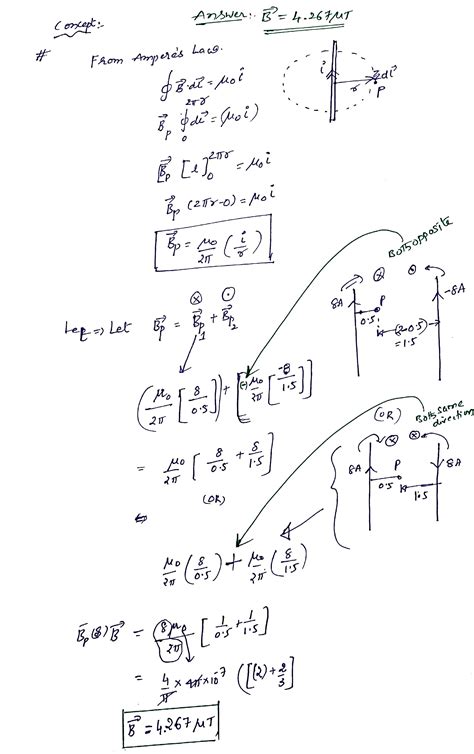 Concept:-
Answer:- B⃗ = 4.267 μT
# From Ampere's Law.
∮ B⃗·dl⃗ = μ₀i
B⃗p ∮₀^2πr dl⃗ = (μ₀i)
B⃗p [l]₀^2πr = μ₀i
B⃗p (2πr-0) = μ₀i
B⃗p = μ₀/2π (i/r)
i r dl⃗ P
Both opposite
⊗ ⊙
8A P 0.5 (2-0.5) = 1.5 -8A
⊗ ⊙
Let B⃗p = B⃗p1 + B⃗p2
(μ₀/2π [8/0.5]) + [(-) μ₀/2π [-8/1.5]]
= μ₀/2π [8/0.5 + 8/1.5]
(OR)
(OR)
Both same direction
⊗ ⊗
8A P 0.5 1.5 8A
μ₀/2π (8/0.5) + μ₀/2π (8/1.5)
B⃗p (or) B⃗ = 8μ₀/2π [1/0.5 + 1/1.5]
= 4/π × 4π×10⁻⁷ ([(2) + 2/3]
B⃗ = 4.267 μT